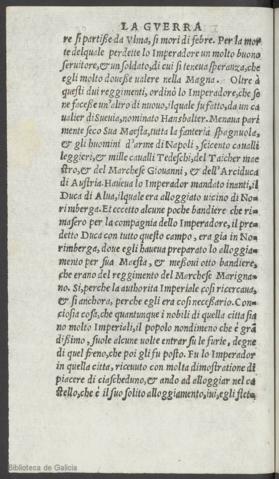 LA GVERRA
re si partisse da Vlma, si mori di febre. Per la mor
te delquale perdette lo Imperadore un molto buono
seruitore, & un soldato, di cui si teneua speranza, che
egli molto douesse ualere nella Magna. Oltre à
questi dui reggimenti, ordinò lo Imperadore, che se
ne facesse un'altro di nuouo, ilquale fu fatto, da un ca
ualier di Sueuia, nominato Hansbalter. Menaua pari
mente seco Sua Maesta, tutta la fanteria spagnuola,
et gli huomini d'arme di Napoli, seicento caualli
leggieri, & mille caualli Tedeschi, del Taicher mae
stro, & del Marchese Giouanni, & dell'Arciduca
di Austria. Haueua lo Imperador mandato inanti, il
Duca di Alua, ilquale era alloggiato uicino di No-
rimberga. Et eccetto alcune poche bandiere che ri-
masero per la compagnia dello Imperadore, il pre-
detto Duca con tutto questo campo, era gia in No-
rimberga, doue egli haueua preparato lo alloggia-
mento per sua Maesta, & messoui otto bandiere,
che erano del reggimento del Marchese Marigna-
no. Si, perche la authorita Imperiale cosi ricercaua,
& si anchora, perche egli era cosi necessario. Con-
ciosia cosa, che quantunque i nobili di quella citta sia
no molto Imperiali, il popolo nondimeno che è grā
dissimo, suole alcune uolte entrar su le furie, degne
di quel freno, che poi gli fu posto. Fu lo Imperador
in quella citta, riceuuto con molta dimostratione di
piacere di ciascheduno, & ando ad alloggiar nel ca
stello, che è il suo solito alloggiamento, iui, egli stete,
Biblioteca de Galicia